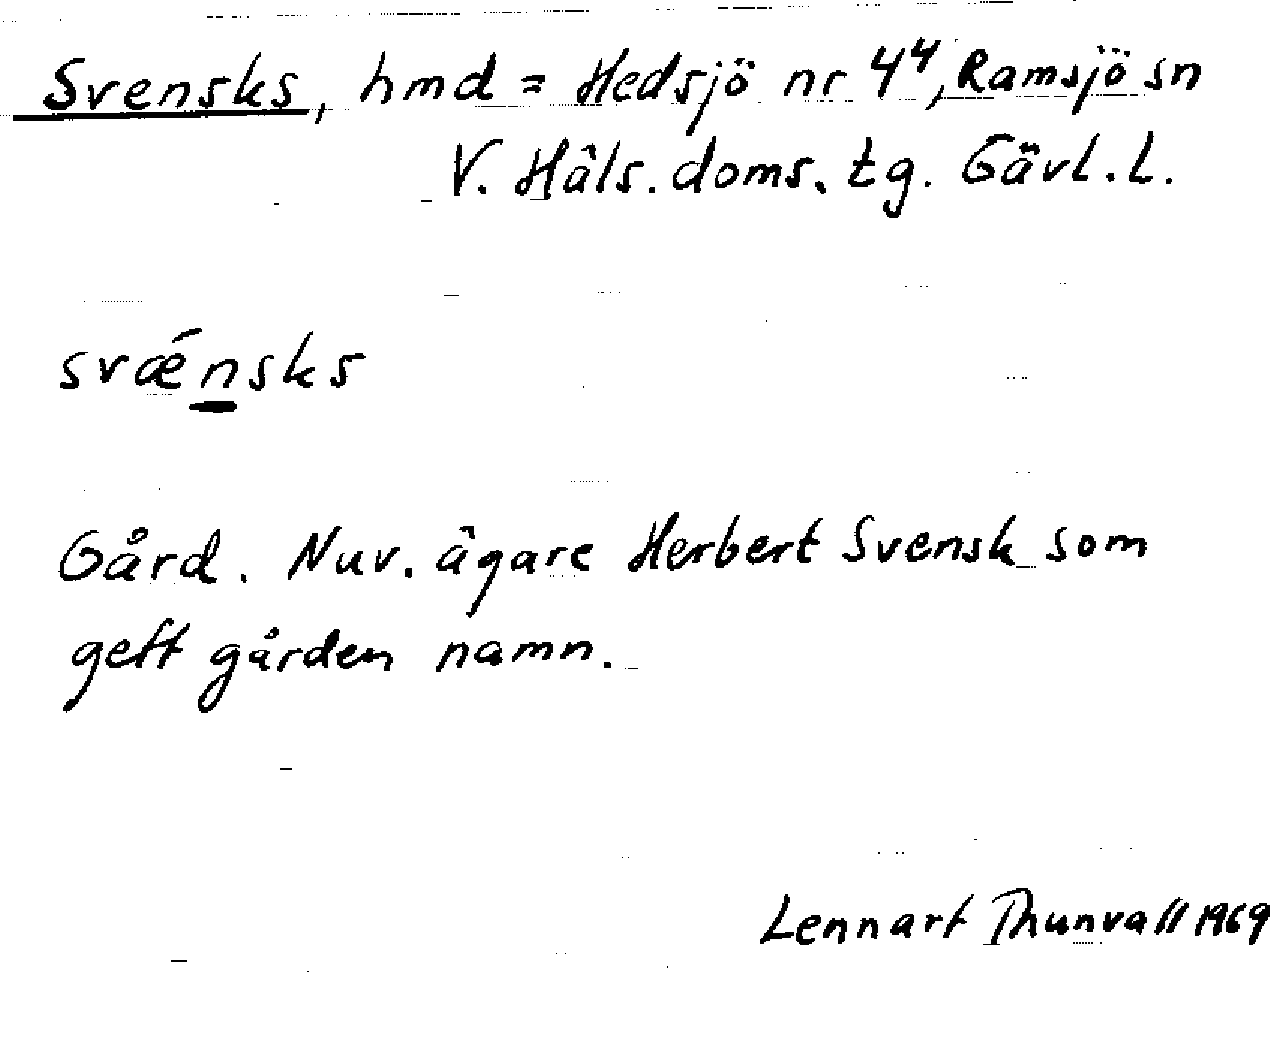 Svensks, hmd = Hedsjö nr 4⁴, Ramsjö sn
V. Häls. doms. tg. Gävl. l.
svǽn̲sks
Gård. Nuv. ägare Herbert Svensk som
gett gården namn.
Lennart Thunvall 1969